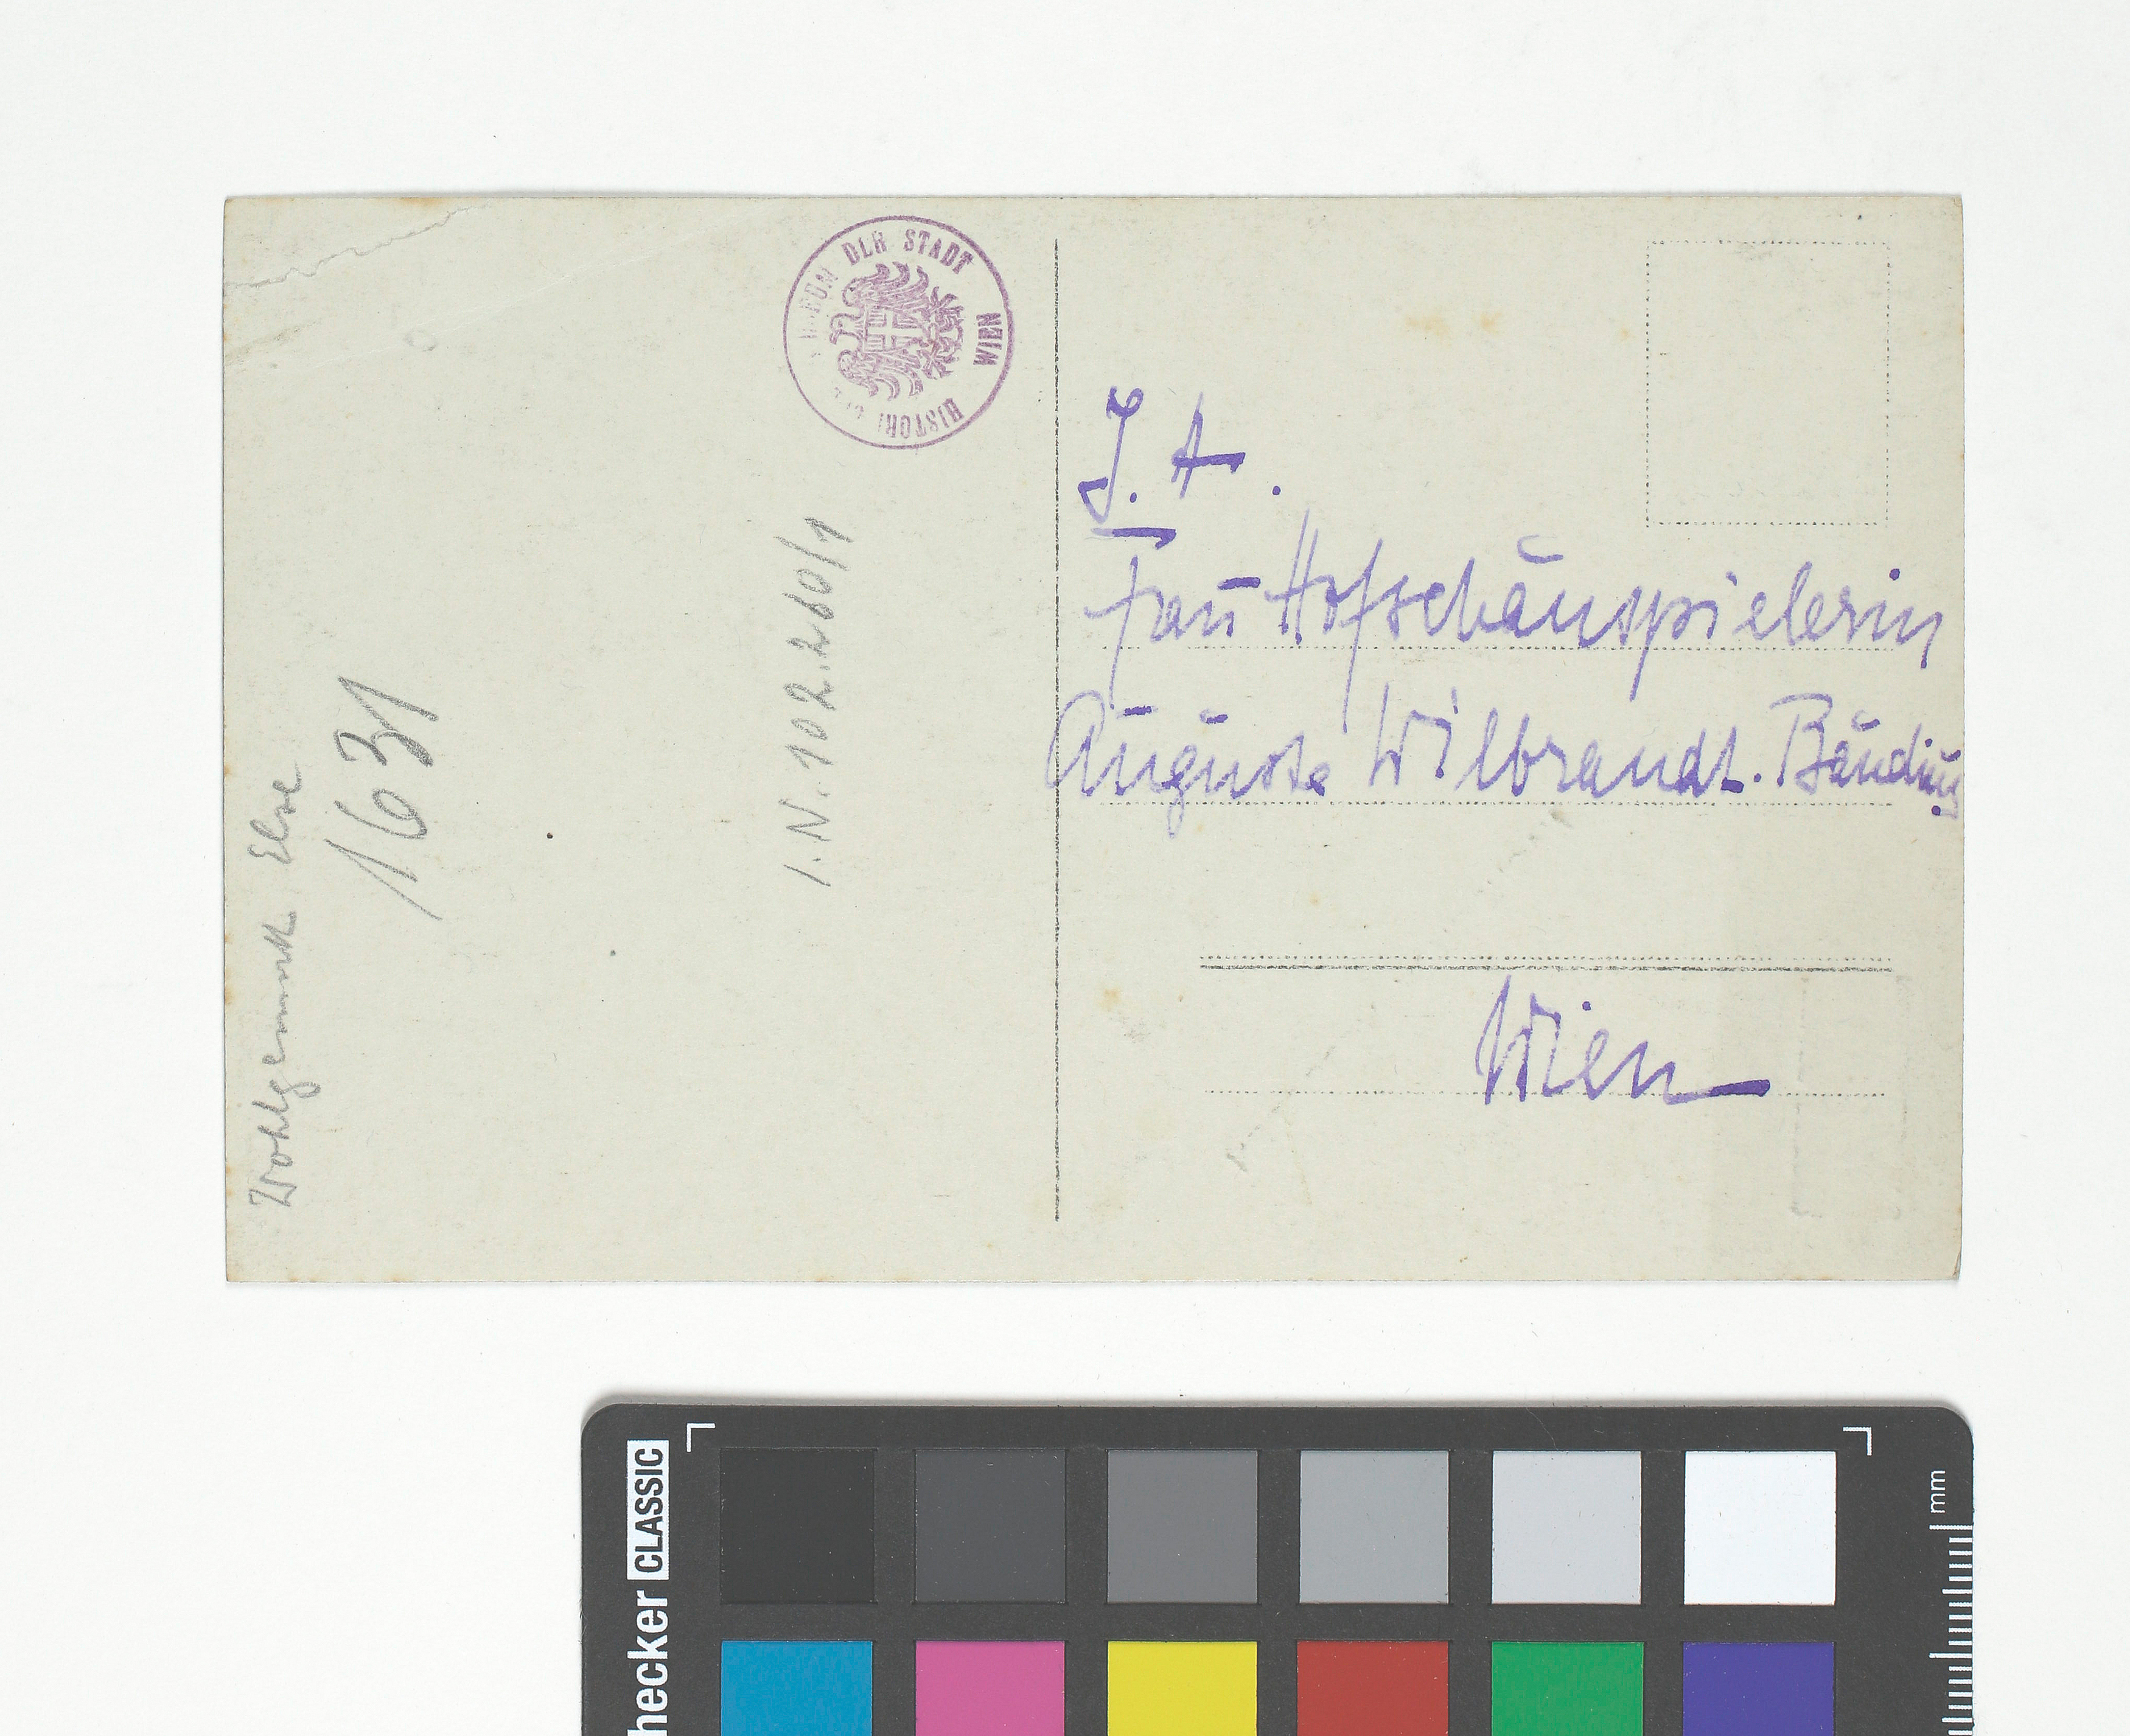 DER STADT WIEN
HISTORI
I. A.
Frau Hofschauspielerin
Auguste Wilbrandt. Baudius
Wien
I.N. 102.260/1
1631
Wohlgemuth Else
hecker CLASSIC
mm